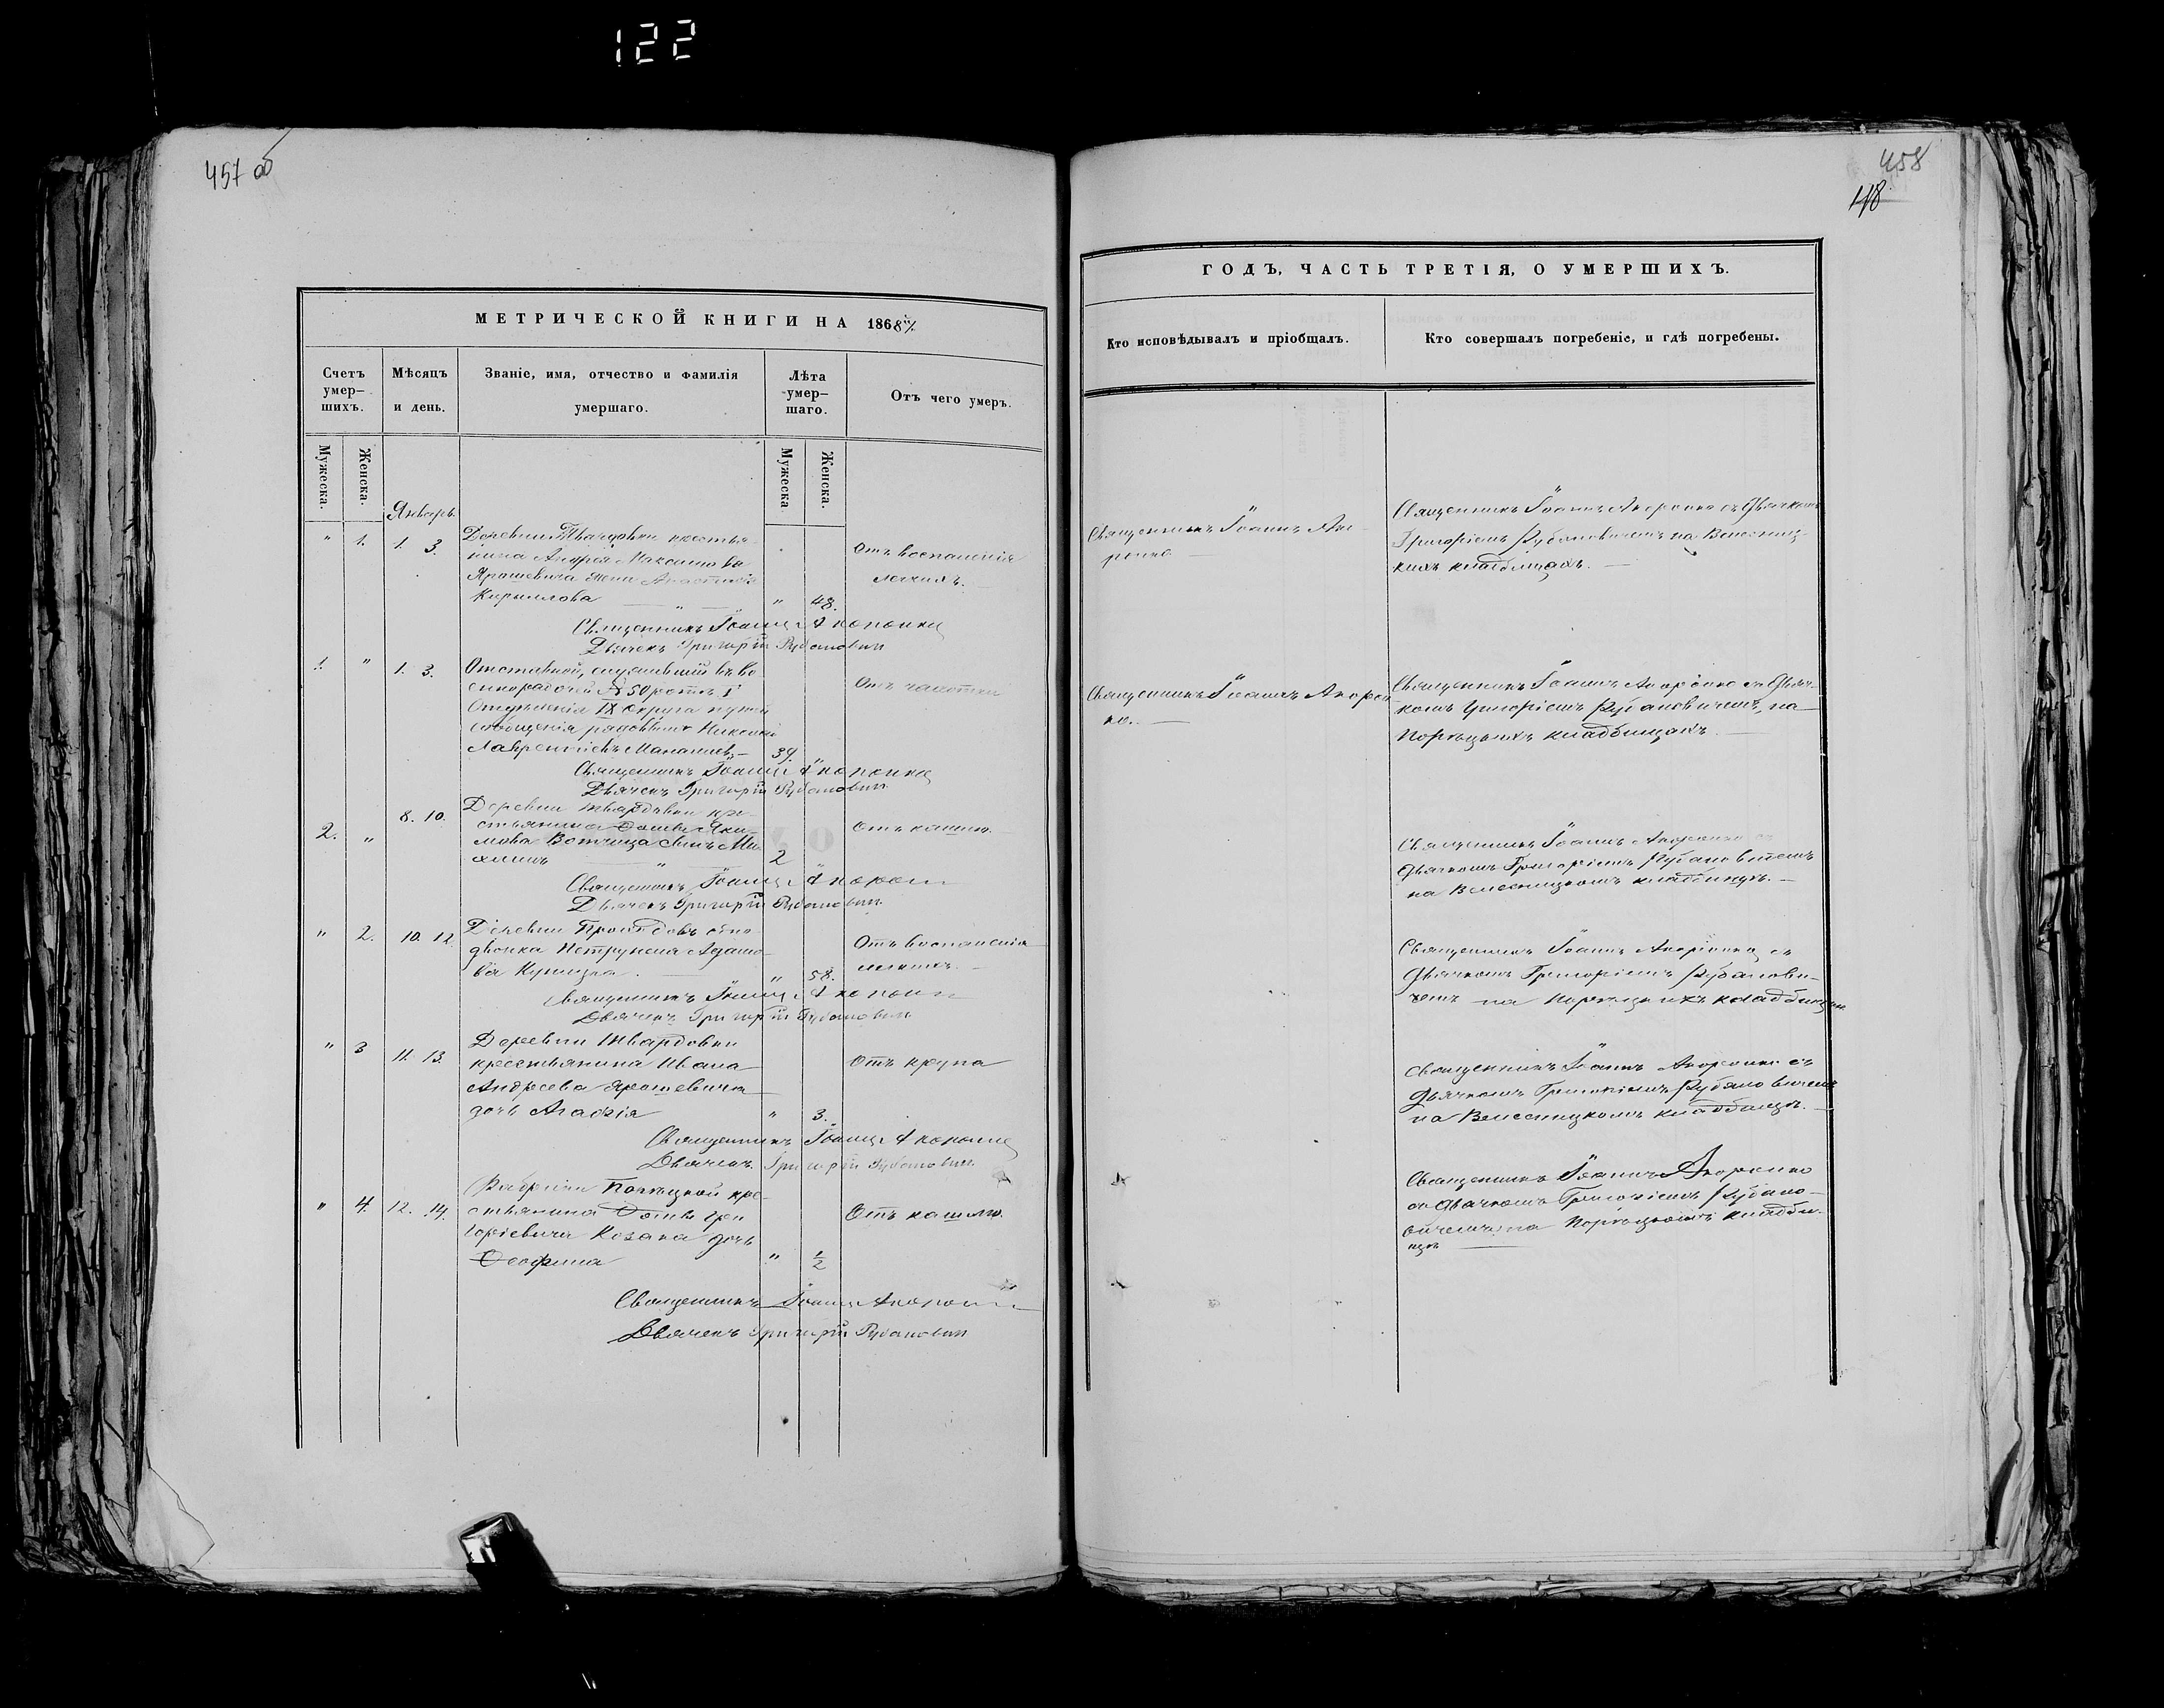 122
457 об
МЕТРИЧЕСКОЙ КНИГИ НА 1868
Счетъ умер-шихъ.
Мѣсяцъ и день.
Званіе, имя, отчество и фамилія умершаго.
Лѣта умер-шаго.
Отъ чего умеръ.
Мужеска.
Женска.
Мужеска
Женска.
Январь.
" 1. 1. 3.
Деревни Твардовки крестья-
нина Андрея Максимова
Ярошевича жена Анастасія
Кириллова " 48.
Отъ воспаленія
легкихъ.
Священникъ Іоаннъ
Дьячекъ Григорій Рубановичъ
1 " 1. 3.
Отставной, служившій въ во
енорабочей № 50 ротѣ I
Отдѣленія IX Округа путей
сообщенія рядовым Николай
Лаврентіевъ 39.
Отъ чахотки
Священникъ Іоаннъ
Дьячекъ Григорій Рубановичъ
2. " 8. 10.
Деревни Твардовки кре-
стьянина Яки-
мова сынъ Ми-
хаилъ " 2 "
Отъ кашлю.
Священникъ Іоаннъ
Дьячекъ Григорій Рубановичъ
" 2. 10. 12.
Деревни одно-
дворка Адамо-
ва " 58.
Отъ воспаленія
легкихъ.
Священникъ Іоаннъ
Дьячекъ Григорій Рубановичъ
" 3 11. 13.
Деревни Твардовки
крестьянина Ивана
Андреева Ярошевича
дочь Агафія " 3.
Отъ крупа
Священникъ Іоаннъ
Дьячекъ Григорій Рубановичъ
" 4. 12. 14.
кре-
стьянина Гри
горіевича Козака дочь
" 1/2
Отъ кашлю.
Священникъ Іоаннъ
Дьячекъ Григорій Рубановичъ
458
118
ГОДЪ, ЧАСТЬ ТРЕТІЯ, О УМЕРШИХЪ.
Кто исповѣдывалъ и пріобщалъ.
Кто совершалъ погребеніе, и гдѣ погребены.
Священникъ Іоаннъ
Священникъ Іоаннъ съ Дьячкомъ
Григоріемъ Рубановичемъ на Велесниц-
кихъ кладбищахъ.
Священникъ Іоаннъ
Священникъ Іоаннъ съ Дьяч-
комъ Григоріемъ Рубановичемъ, на
Порѣцкихъ кладбищахъ.
Священникъ Іоаннъ съ
Дьячкомъ Григоріемъ Рубановичемъ
на Велесницкомъ кладбищѣ.
Священникъ Іоаннъ съ
Дьячкомъ Григоріемъ Рубанови-
чемъ на Порѣцкихъ кладбищахъ
Священникъ Іоаннъ съ
Дьячкомъ Григоріемъ Рубановичемъ
на Велесницкомъ кладбищѣ.
Священникъ Іоаннъ
съ Дьячкомъ Григоріемъ Рубано-
вичемъ на Порѣцкомъ кладби-
щѣ